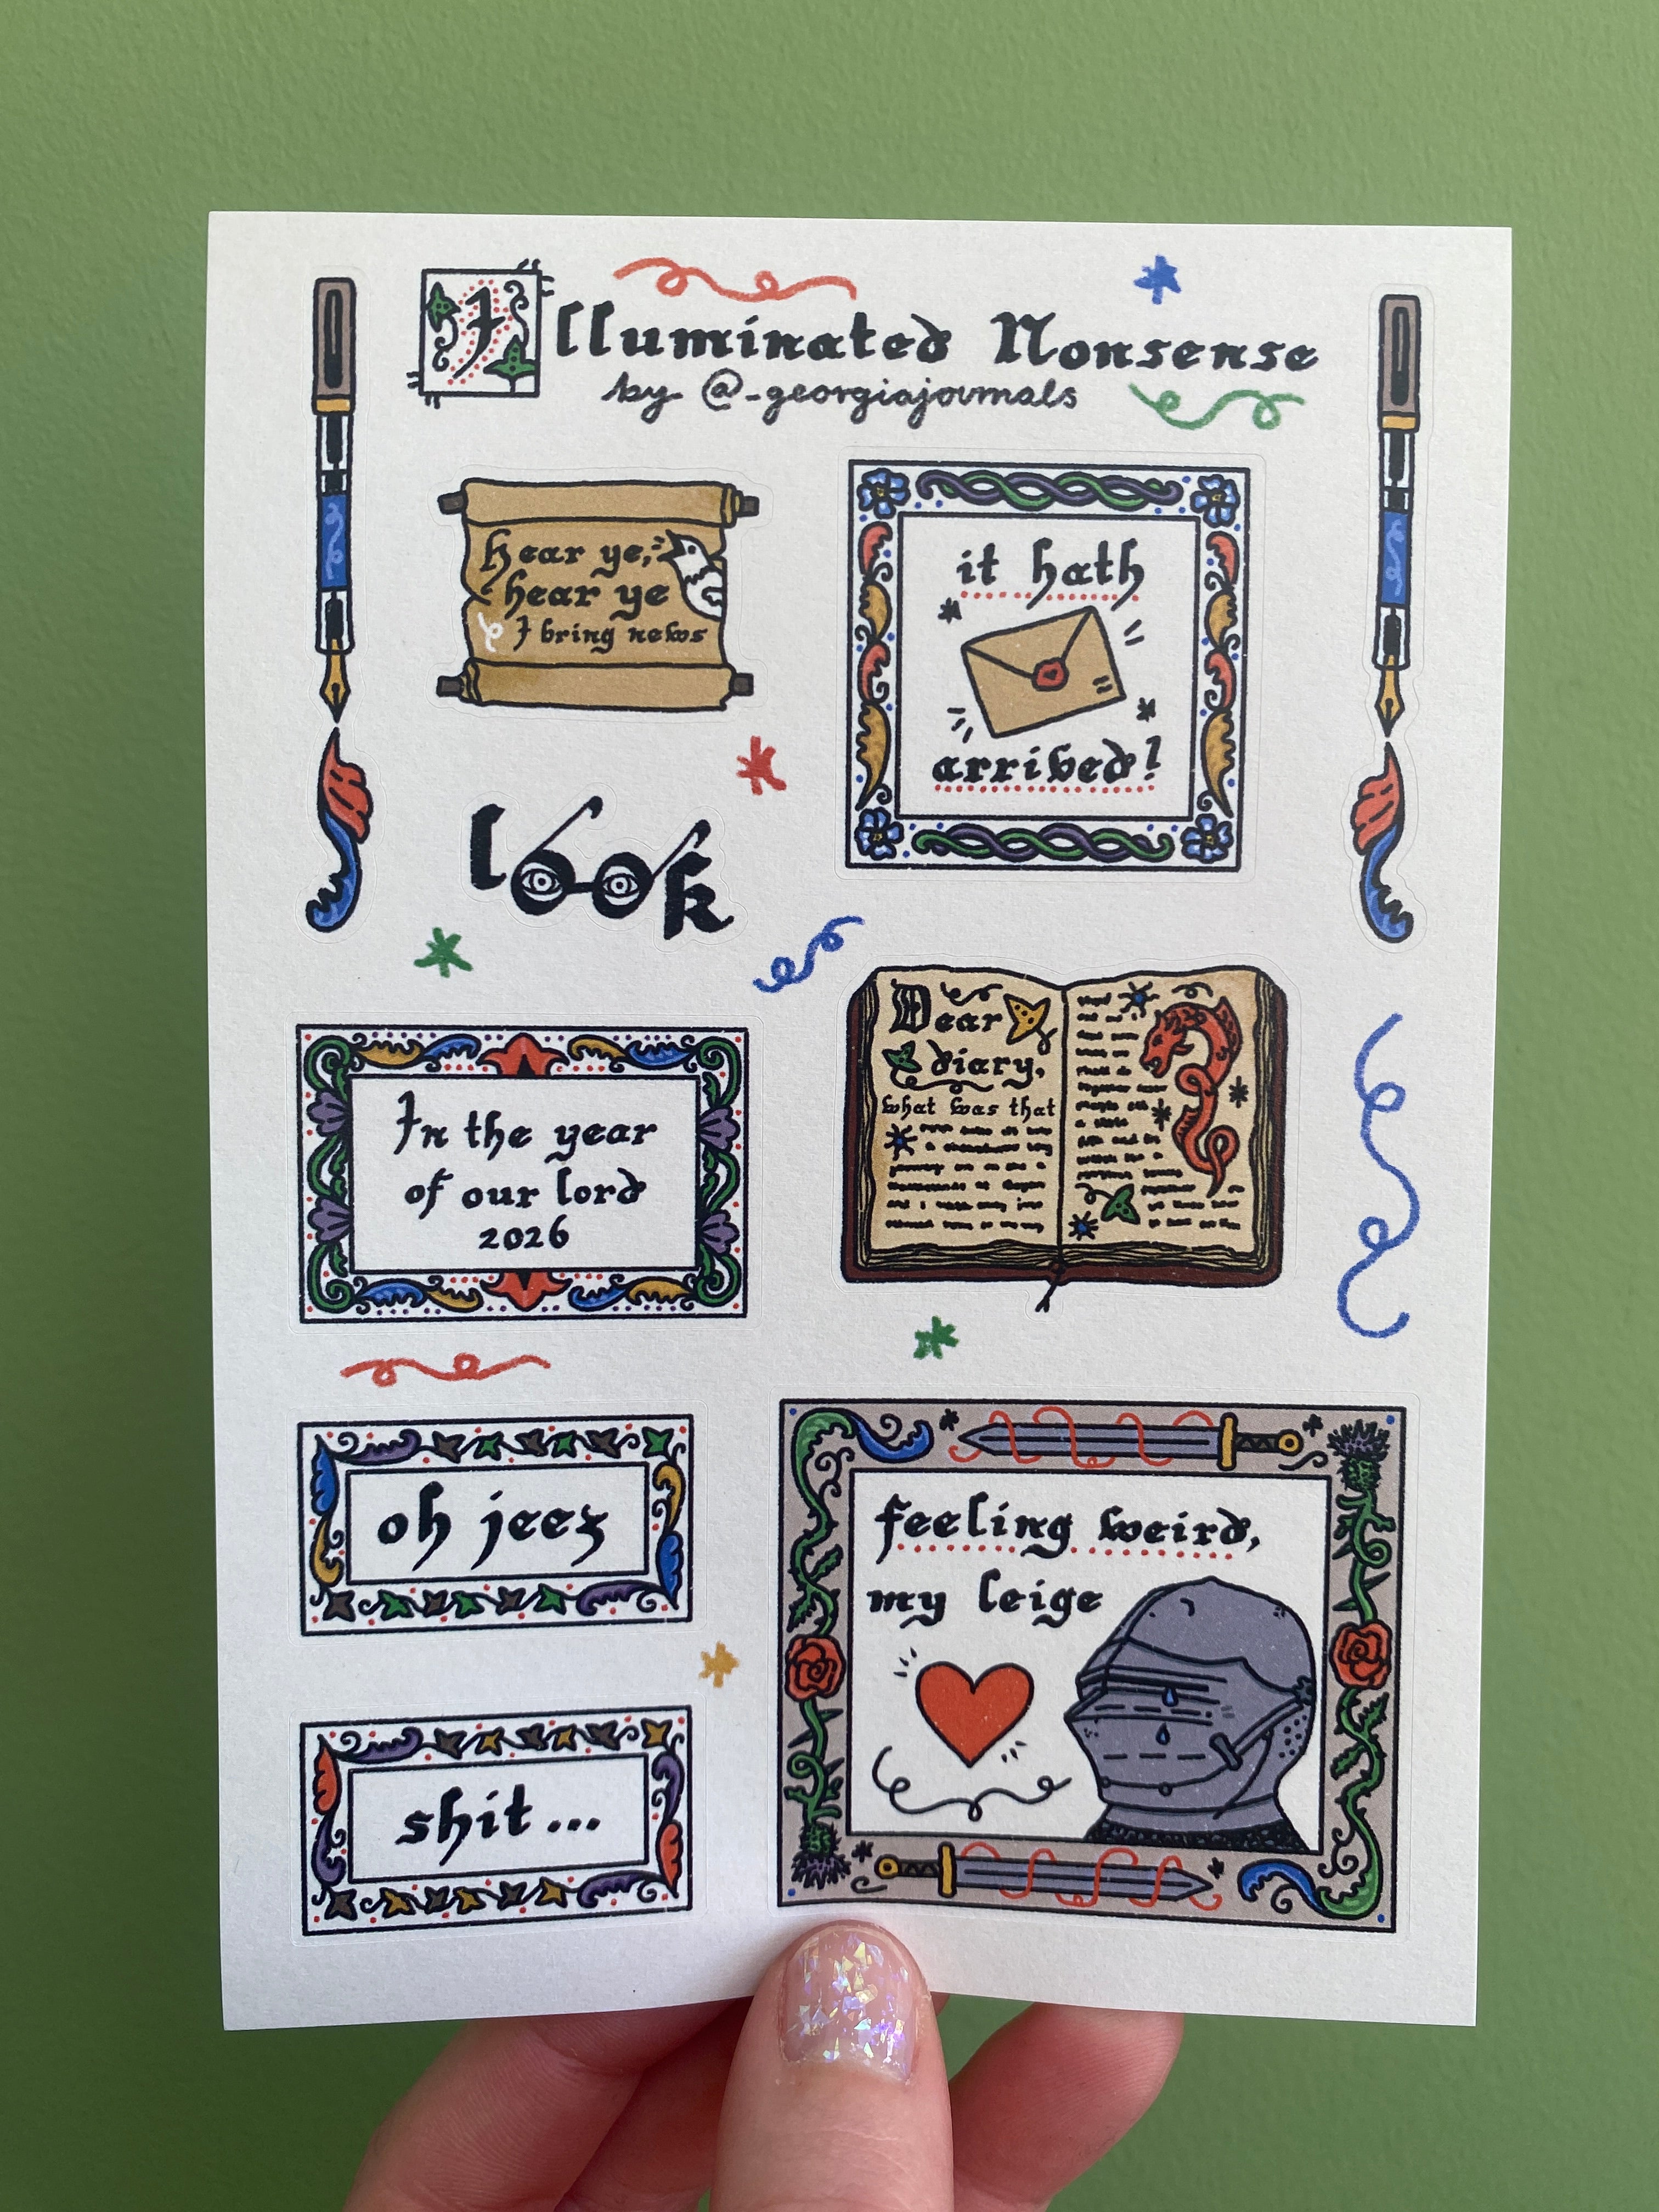 Illuminated Nonsense
by @_georgiajournals
hear ye,
hear ye
I bring news
it hath
arrived!
look
Dear
diary,
what was that
In the year
of our lord
2026
oh jeez
feeling weird,
my leige
shit...